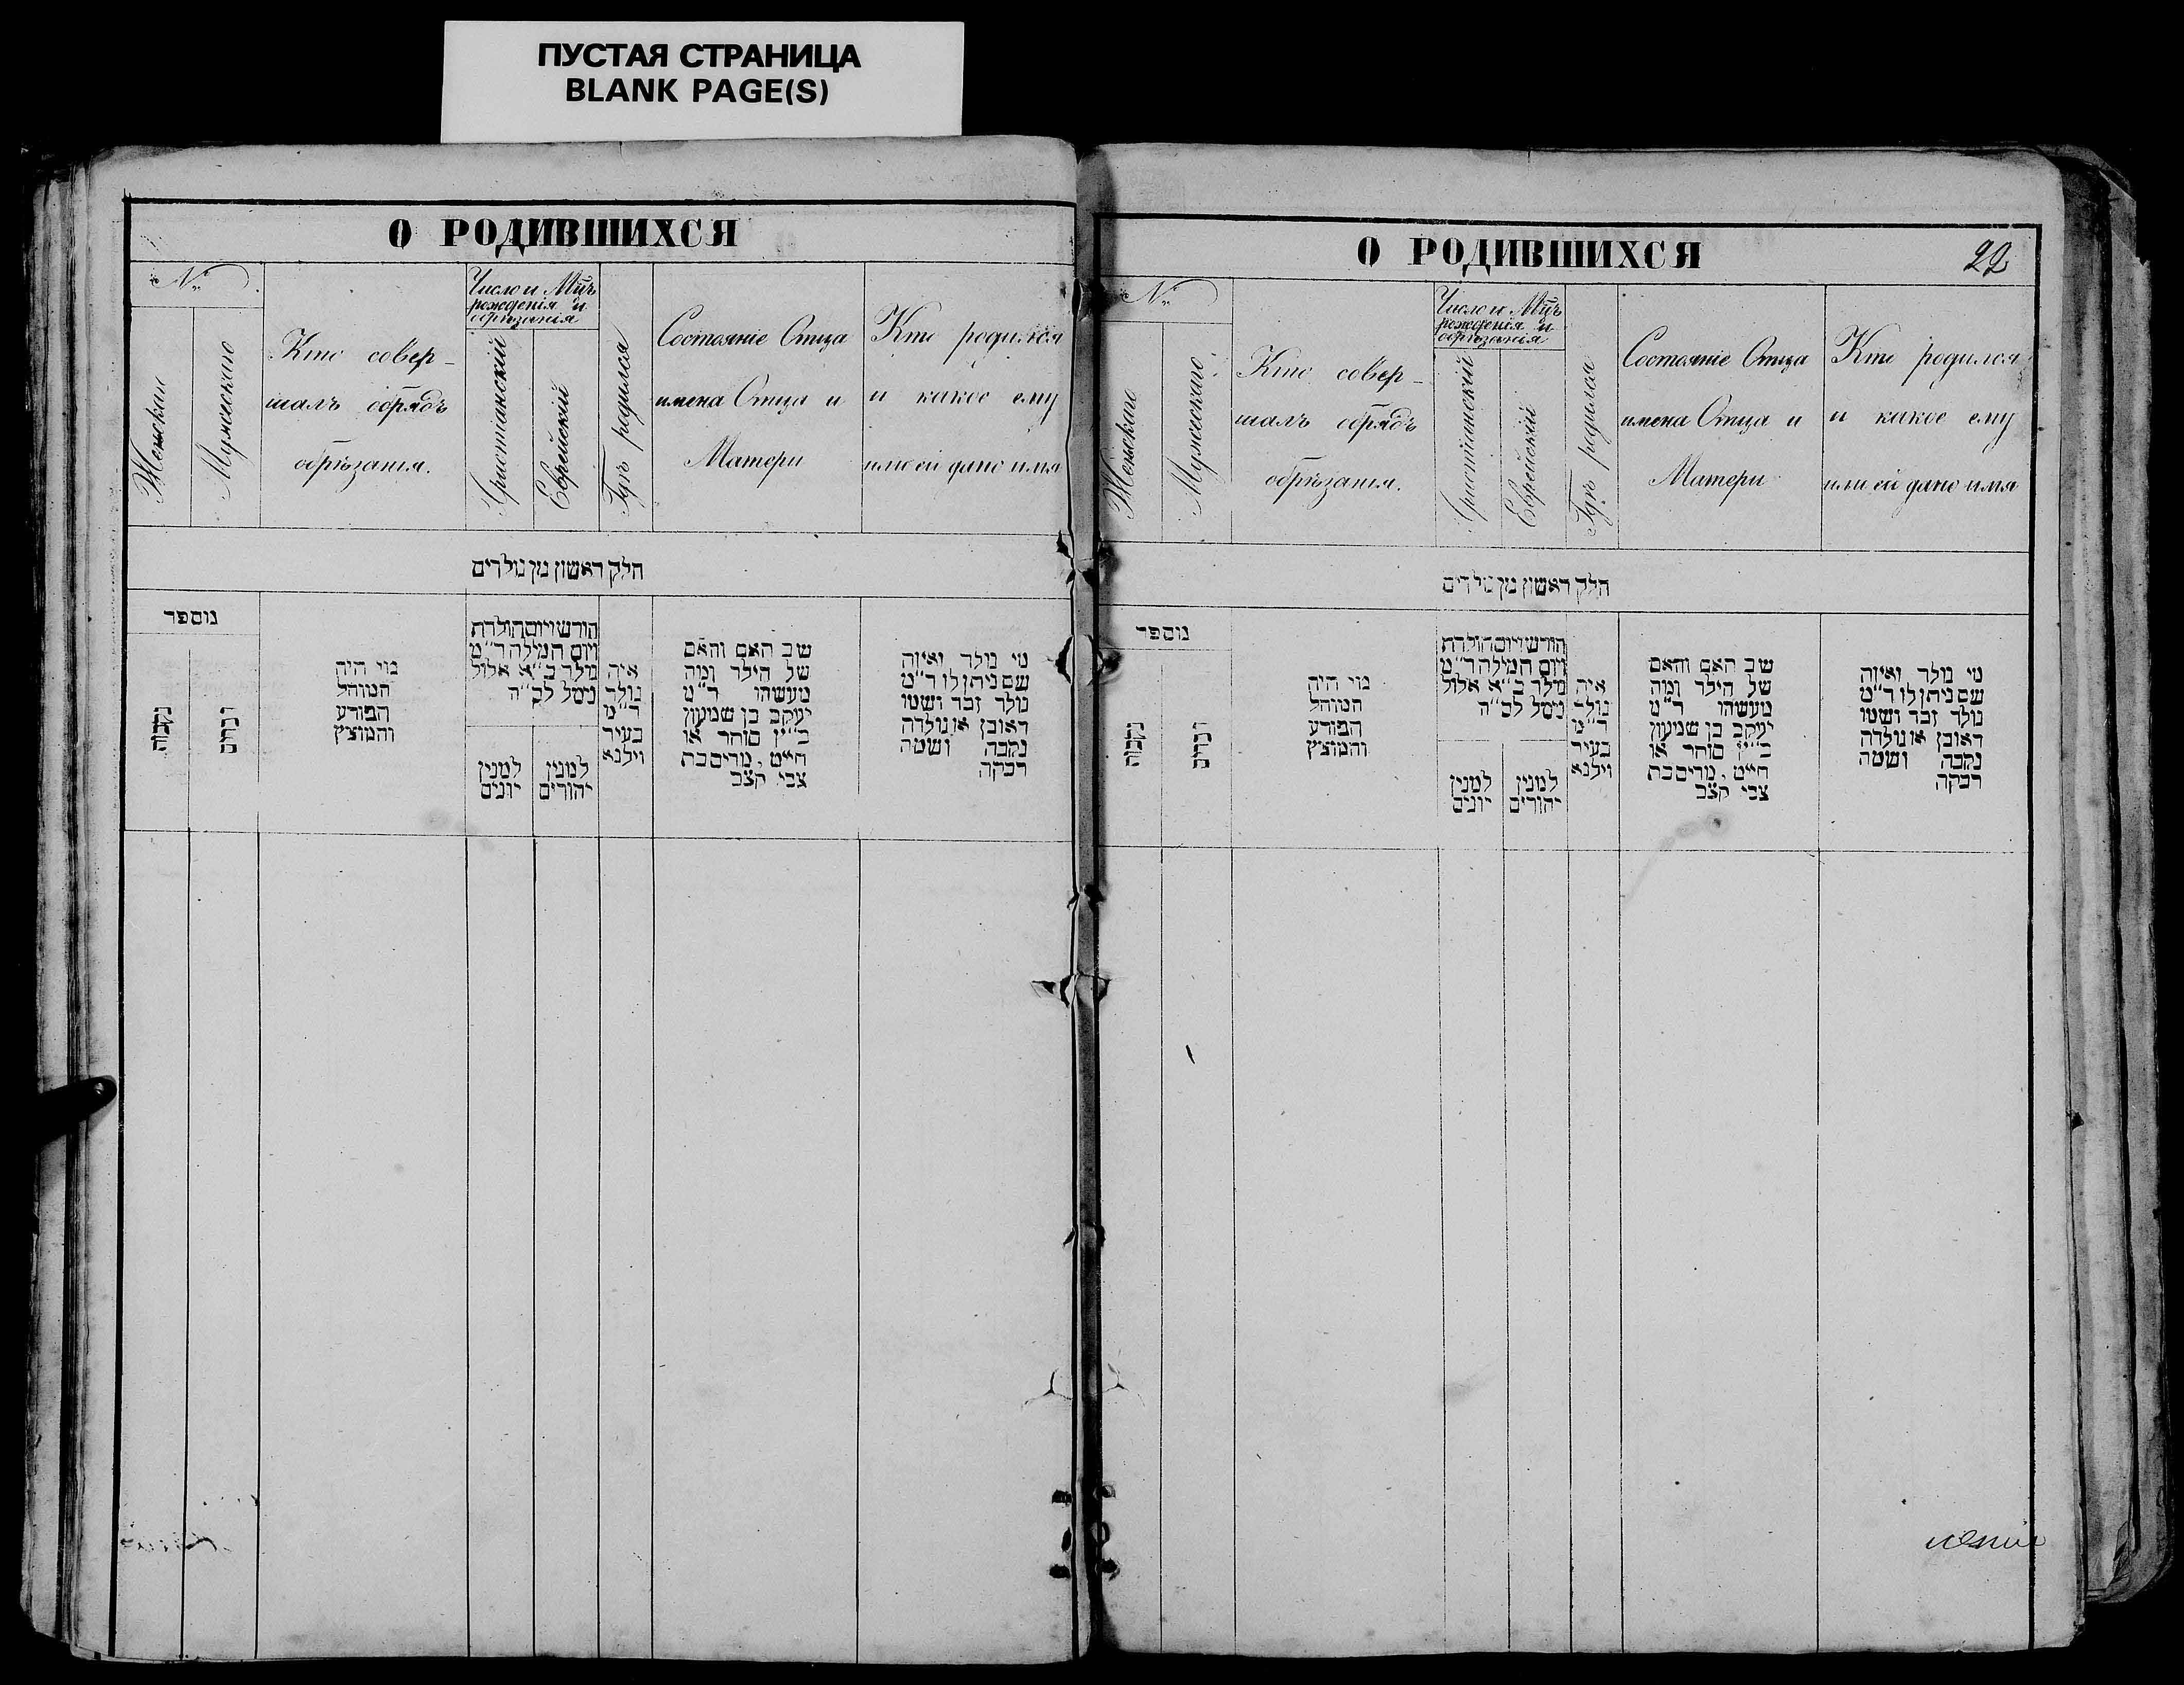 ПУСТАЯ СТРАНИЦА
BLANK PAGE(S)
О РОДИВШИХСЯ
№
Женскаго
Мужескаго
Кто совер-
шалъ обрядъ
обрѣзанія.
Число и Мц̃ъ
рожденія и
обрѣзанія
Христіанскій
Еврейскій
Гдѣ родился
Состояніе Отца
имена Отца и
Матери
Кто родился
и какое ему
или ей дано имя
חלק ראשון מן נולדים
מספר
נקבות
זכרים
מי היה
המוהל
הפורע
והמוצץ
חודש ויום הולדת
ויום המילה ד״מ
נולד כ״א אלול
נימל לכ״ה
למנין
יונים
למנין
יהודים
איה
נולד
ד״מ
בעיר
וילנא
שב האם והאם
של הילד ומה
מעשהו ד״מ
יעקב בן שמעון
כ״ץ סוחר או
חייט, מרים בת
צבי קצב
מי נולד ואיזה
שם ניתן לו ד״מ
נולד זכר ושמו
ראובן או נולדה
נקבה ושמה
רבקה
О РОДИВШИХСЯ
22
№
Женскаго
Мужескаго
Кто совер-
шалъ обрядъ
обрѣзанія.
Число и Мц̃ъ
рожденія и
обрѣзанія
Христіанскій
Еврейскій
Гдѣ родился
Состояніе Отца
имена Отца и
Матери
Кто родился
и какое ему
или ей дано имя
חלק ראשון מן נולדים
מספר
נקבות
זכרים
מי היה
המוהל
הפורע
והמוצץ
חודש ויום הולדת
ויום המילה ד״מ
נולד כ״א אלול
נימל לכ״ה
למנין
יונים
למנין
יהודים
איה
נולד
ד״מ
בעיר
וילנא
שב האם והאם
של הילד ומה
מעשהו ד״מ
יעקב בן שמעון
כ״ץ סוחר או
חייט, מרים בת
צבי קצב
מי נולד ואיזה
שם ניתן לו ד״מ
נולד זכר ושמו
ראובן או נולדה
נקבה ושמה
רבקה